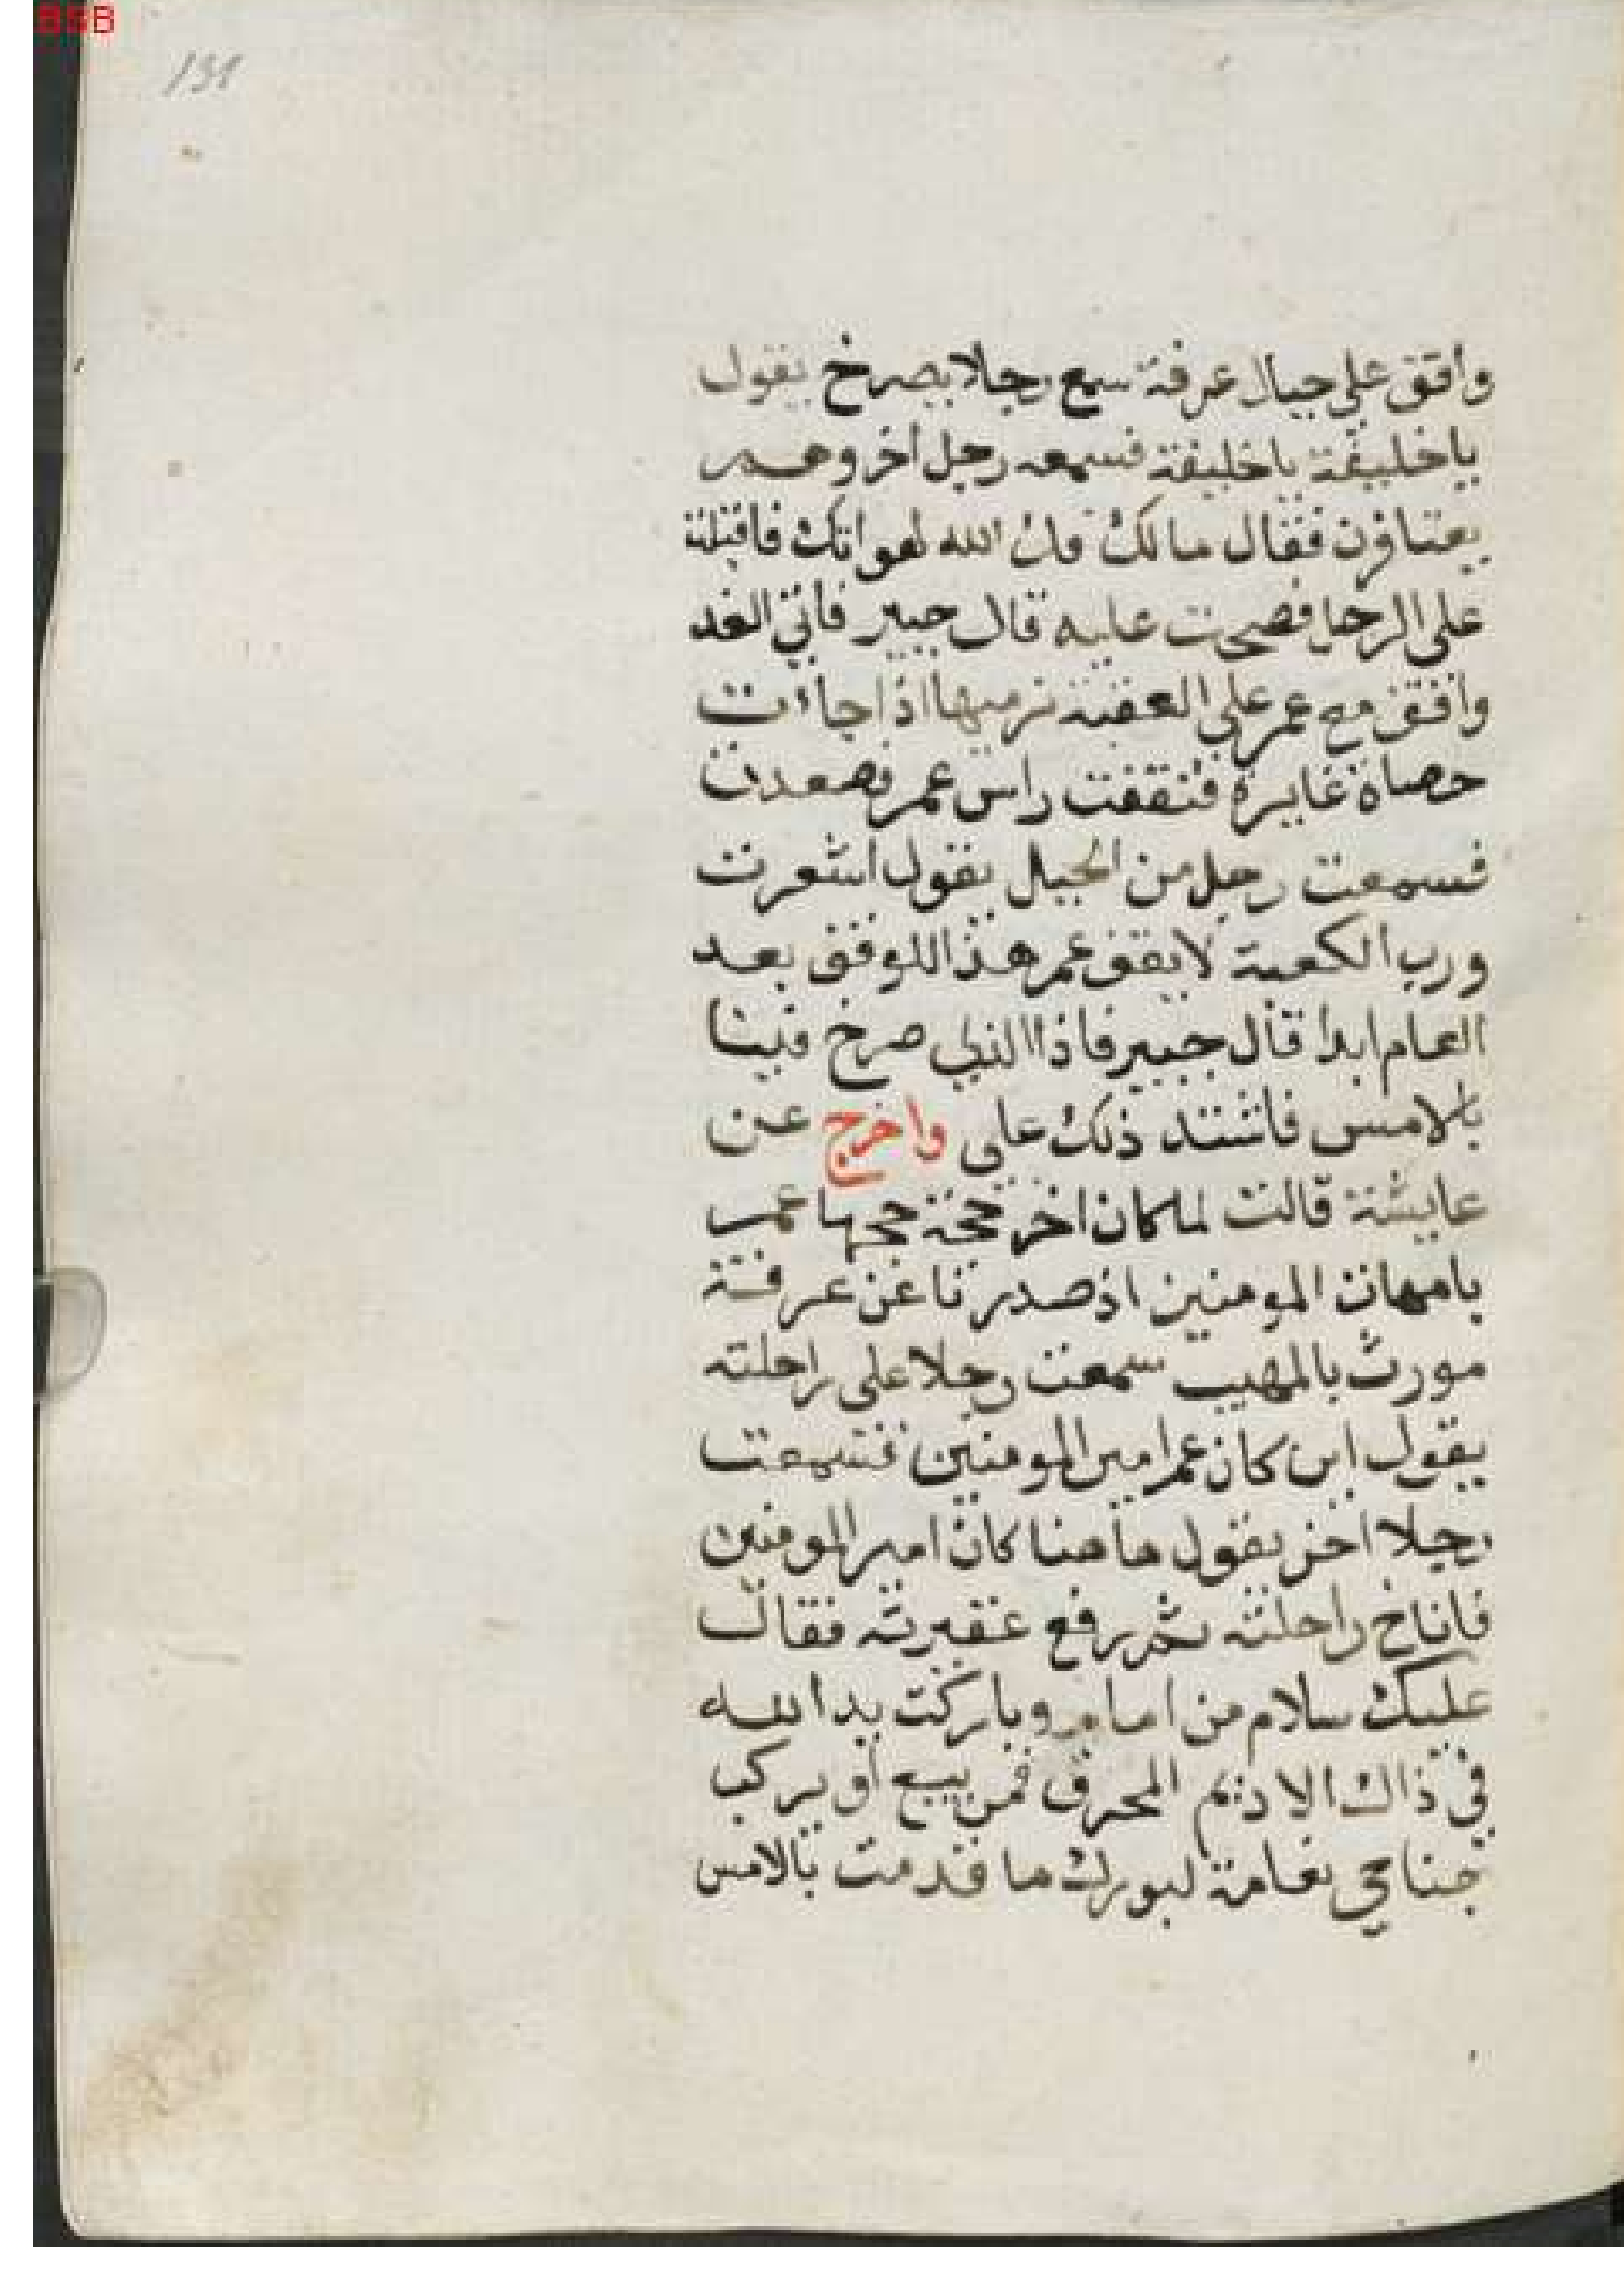 BSB
131
وافق على جبال عرفة سمع رجلا يصرخ يقول
ياخليفة ياخليفة فسمعه رجل اخر وهم
يعتافون فقال مالك فك الله لهواتك فاقبلت
على الرجل فصحت عليه قال جبير فاني الغد
وافق مع عمر على العقبة نرميها اذا جاءت
حصاة غايرة فنقفت راس عمر فصعدت
فسمعت رجل من الجبل يقول اشعرت
ورب الكعبة لا يقف عمر هذا الموقف بعد
العام ابدا قال جبير فاذا الذي صرخ فينا
بالامس فاشتد ذلك علي واخرج عن
عايشة قالت لما كان اخر حجة حجها عمر
بامهات المومنين اذ صدرنا عن عرفة
مورت بالمهيب سمعت رجلا على راحلته
يقول اين كان عمر امير المومنين فسمعت
رجلا اخر يقول هاهنا كان امير المومنين
فاناخ راحلته ثم رفع عقيرته فقال
عليك سلام من امام وباركت يد الله
في ذاك الاديم المحرق فمن يبيع أو يركب
جناحي نعامة لبورك ما قدمت بالامس